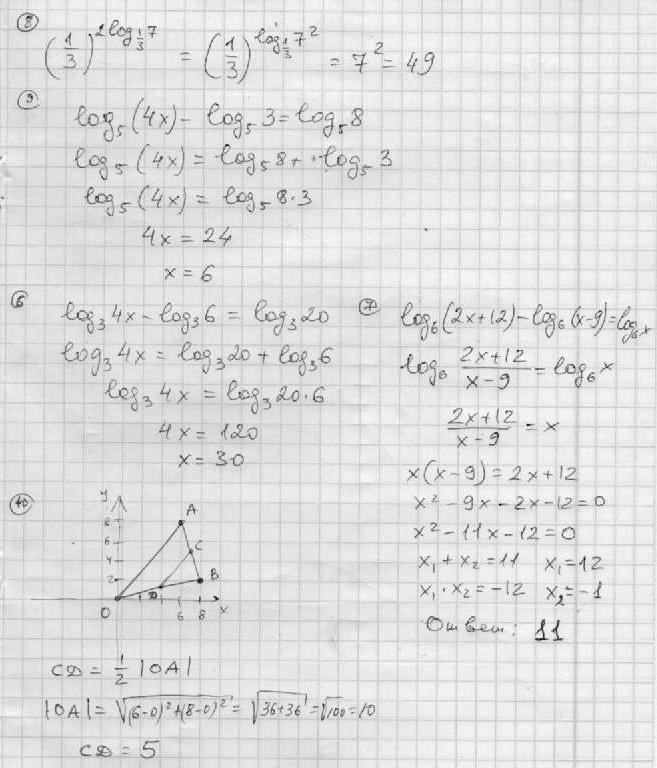 8
(1/3)^(2log_(1/3)7) = (1/3)^(log_(1/3)7²) = 7² = 49
9
log₅(4x) - log₅3 = log₅8
log₅(4x) = log₅8 + log₅3
log₅(4x) = log₅8·3
4x = 24
x = 6
6
log₃4x - log₃6 = log₃20
log₃4x = log₃20 + log₃6
log₃4x = log₃20·6
4x = 120
x = 30
7
log₆(2x+12) - log₆(x-9) = log₆x
log₆ (2x+12)/(x-9) = log₆x
(2x+12)/(x-9) = x
x(x-9) = 2x+12
x² - 9x - 2x - 12 = 0
x² - 11x - 12 = 0
x₁ + x₂ = 11 x₁ = 12
x₁ · x₂ = -12 x₂ = -1
Ответ: 11
40
y
A
8
6
C
4
2
B
D
O
6 8 x
CD = 1/2 |OA|
|OA| = √((6-0)²+(8-0)²) = √(36+36) = √100 = 10
CD = 5